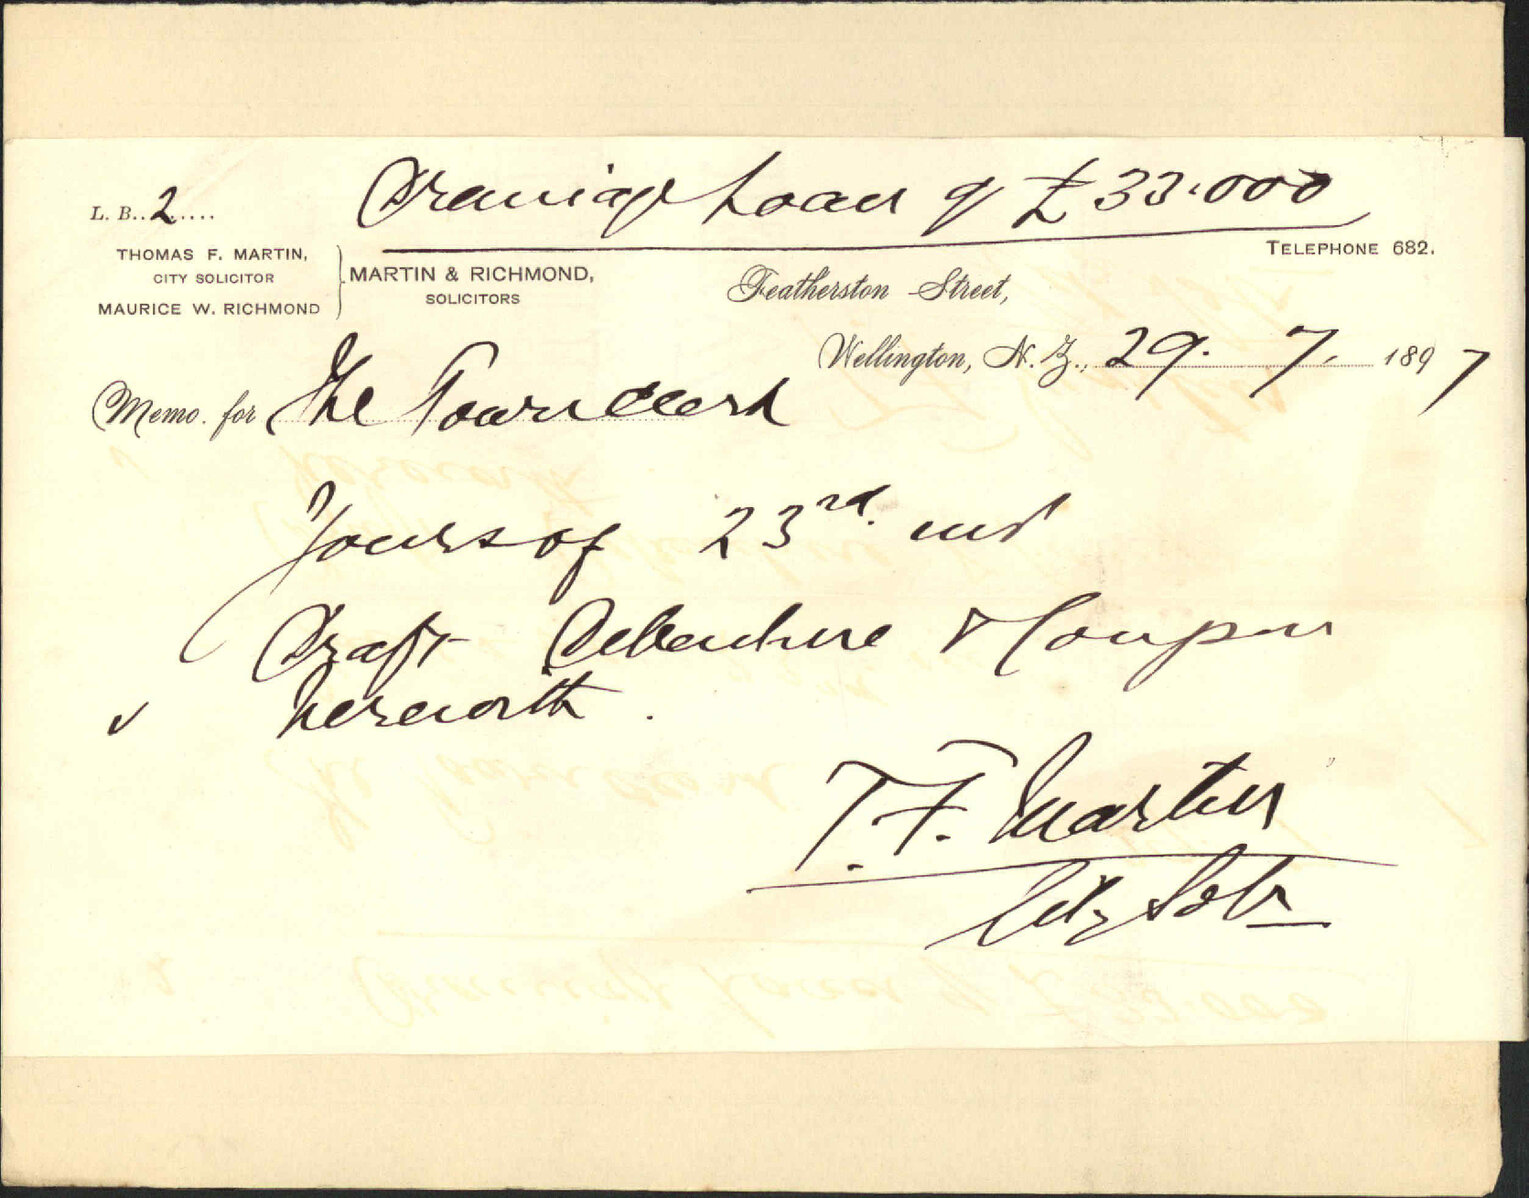 Drainage Loan of £33.000
L. B..2.....
TELEPHONE 682.
THOMAS F. MARTIN,
CITY SOLICITOR
MAURICE W. RICHMOND
MARTIN & RICHMOND,
SOLICITORS
Featherston Street,
Wellington, N. Z., 29. 7. 1897
Memo. for The Town Clerk
Yours of 23rd. inst
Draft Debenture & Coupon
herewith.
T. F. Martin
City Solr